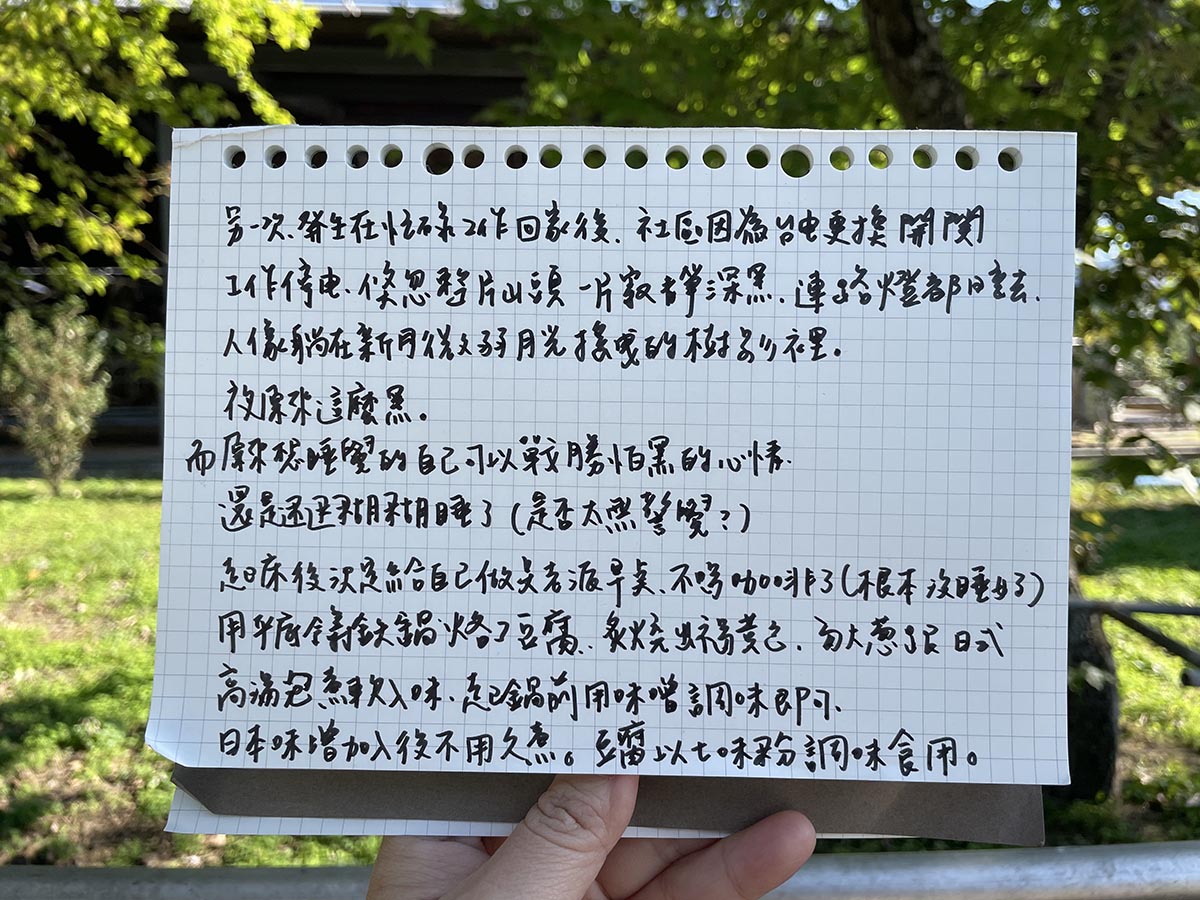 另一次、發生在忙碌工作回家後、社區因為台電更換開關
工作停電、倏忽整片山頭一片寂靜深黑、連路燈都暗去、
人像躺在新月微弱月光搖曳的樹影裡。
夜原來這麼黑。
而原來想睡覺的自己可以戰勝怕黑的心情、
還是迷迷糊糊睡了(是否太無警覺?)
起床後決定給自己做早桌、不喝咖啡了(根本沒睡好了)
用平底鑄鐵鍋烙了豆腐、炙燒出褐黃色、大蔥段日式
高湯包煮軟入味、起鍋前用味噌調味即可、
日本味增加入後不用久煮。豆腐以七味粉調味食用。